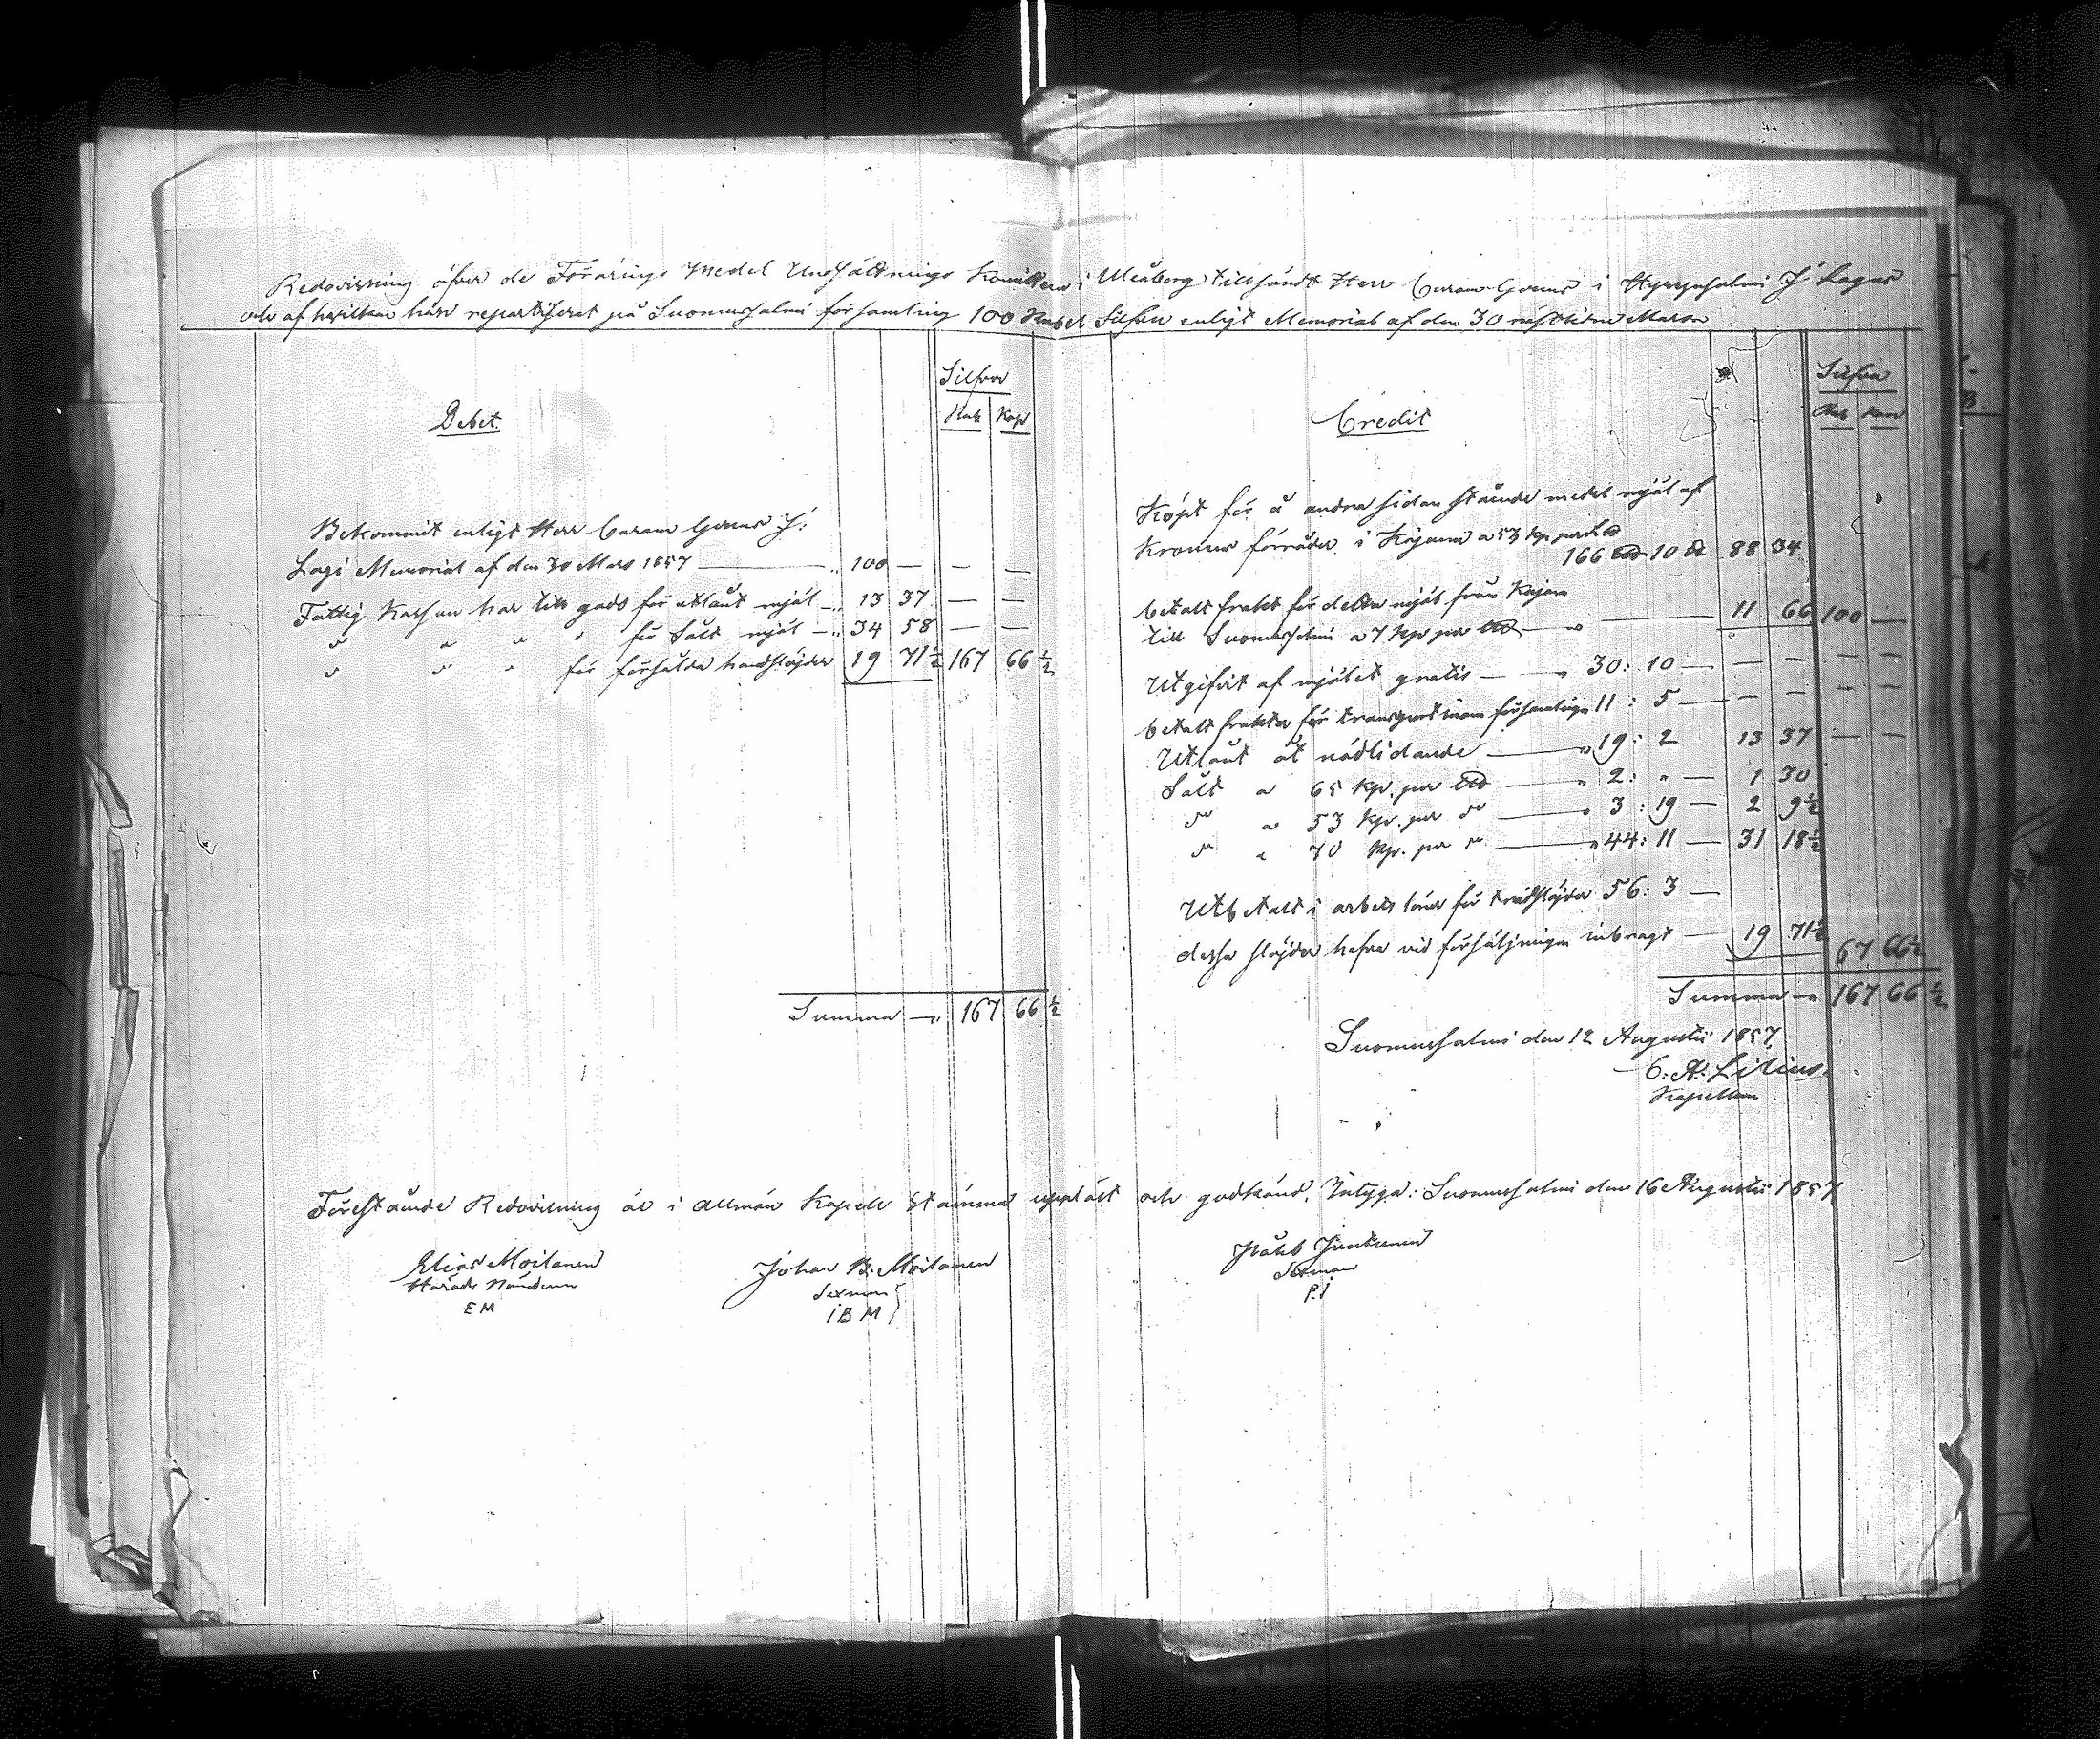 Redovisning öfver de Förärings Medel Undsättnings Komitten i Uleåborg tillsändt Herr Curam Gerens i Hyrynsalmi J Lagus
och af hvilka har repartiserat på Suomussalmi församling 100 Rubel Silfver enligt Memorial af den 30 nästlidne Martii
Debet.
Silfver
Rub Kop
Bekommit enligt Herr Curam Gerens J:
Lagi Memorial af den 30 Mars 1857 — " 100 — — —
Fattig Kassan har till godo för utlånt mjöl — " 13 37 — —
" " " " för Såld mjöl — " 34 58 — —
" " " för försålda handslöjder 19 71½ 167 66½
Summa — " 167 66½
Credit
Silfver
Rub Kop
Köpt för å andra sidan stående medel mjöl af
Kronans förråder i Kajana a 53 kp per L℔
166 L℔ 10 ℔ 88 34
betalt frakt för detta mjöl från Kajana
till Suomussalmi a 7 Kop per L℔ — " — 11 66 100 —
Utgifvit af mjölet gratis — " 30: 10 — — — — —
betalt frakter för transport inom församlingen 11: 5 — — — — —
Utlånt åt nödlidande — " 19: 2 13 37 — —
Såld a 65 Kp. per L℔ — " 2: " — 1 30
" a 53 Kp. per " — " 3: 19 — 2 9½
" a 70 Kp. per " — " 44: 11 — 31 18½
Utbetalt i arbets löner för handslöjder 56: 3 —
dessa slöjder hafva vid försäljningen inbragt — 19 71½ 67 66½
Summa — " 167 66½
Suomussalmi den 12 Augustii 1857
C: A: Lilius.
Kapellan
Förestående Redovisning är i allmän Kapell Stämma uppläst och godkänd, Intyga: Suomussalmi den 16 Augustii 1857
Elias Moilanen
Härads Nämdeman
E M
Johan B. Moilanen
Sexman
I B M
Juntunen
Sexman
P. J